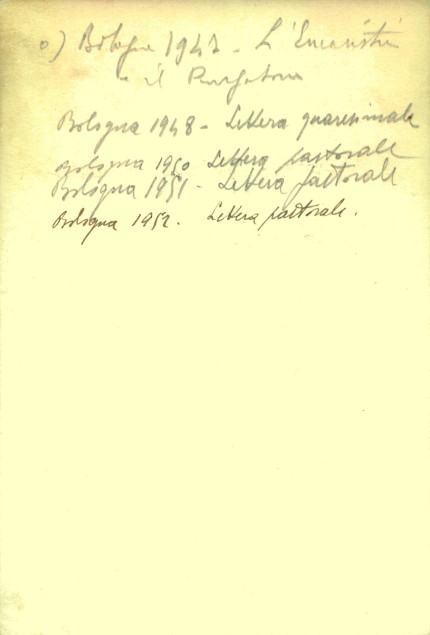 o) Bologna 1947 - L'Eucaristia
e il Purgatorio
Bologna 1948 - Lettera quaresimale
Bologna 1950 Lettera pastorale
Bologna 1951 - Lettera pastorale
Bologna 1952. Lettera pastorale.